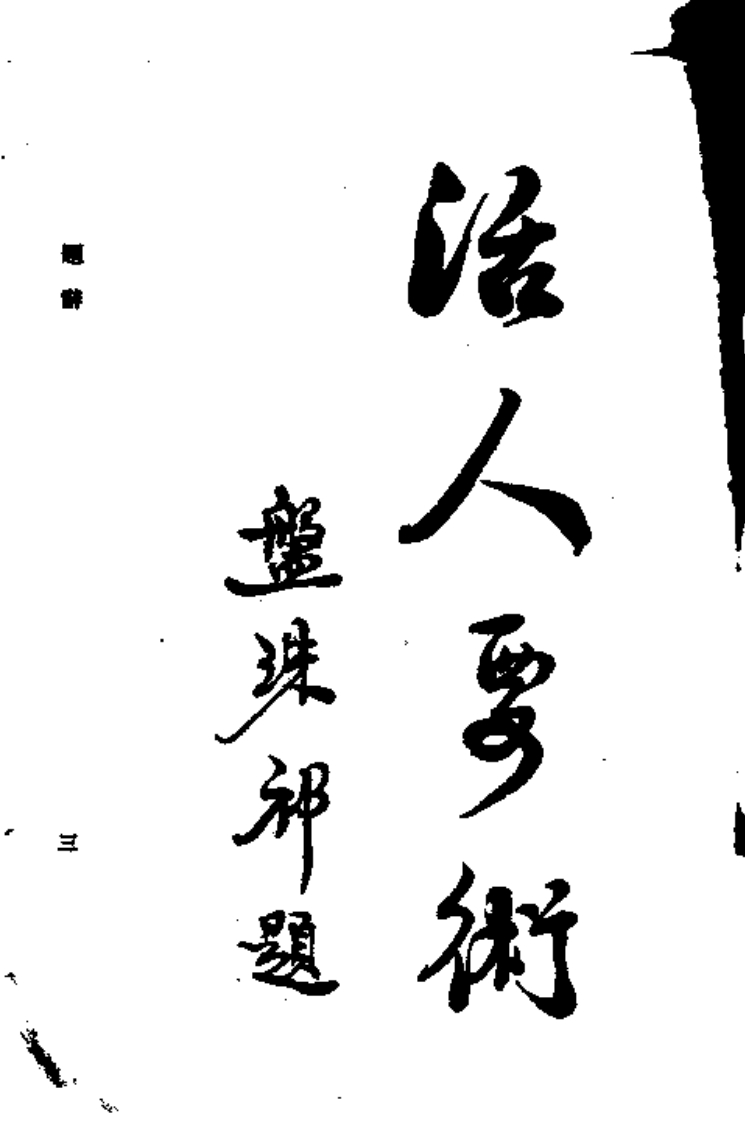 活人要術
盤珠祁題
題辭
三